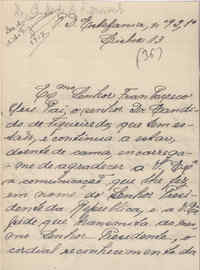 R. D. Estefania, nº 92, 1º
Lisboa 13
(35)
Exmo Senhor Fran Pacheco
Meu Pai, o senhor Dr. Candi-
do de Figueiredo, que tem es-
tado, e continua a estar,
doente de cama, encarrega-
me de agradecer a V. Exª
a comunicação que lhe fez
em nome do Senhor Presi-
dente da Republica, e a
pede que transmita, ao mes-
mo Senhor Presidente, o
cordial reconhecimento da